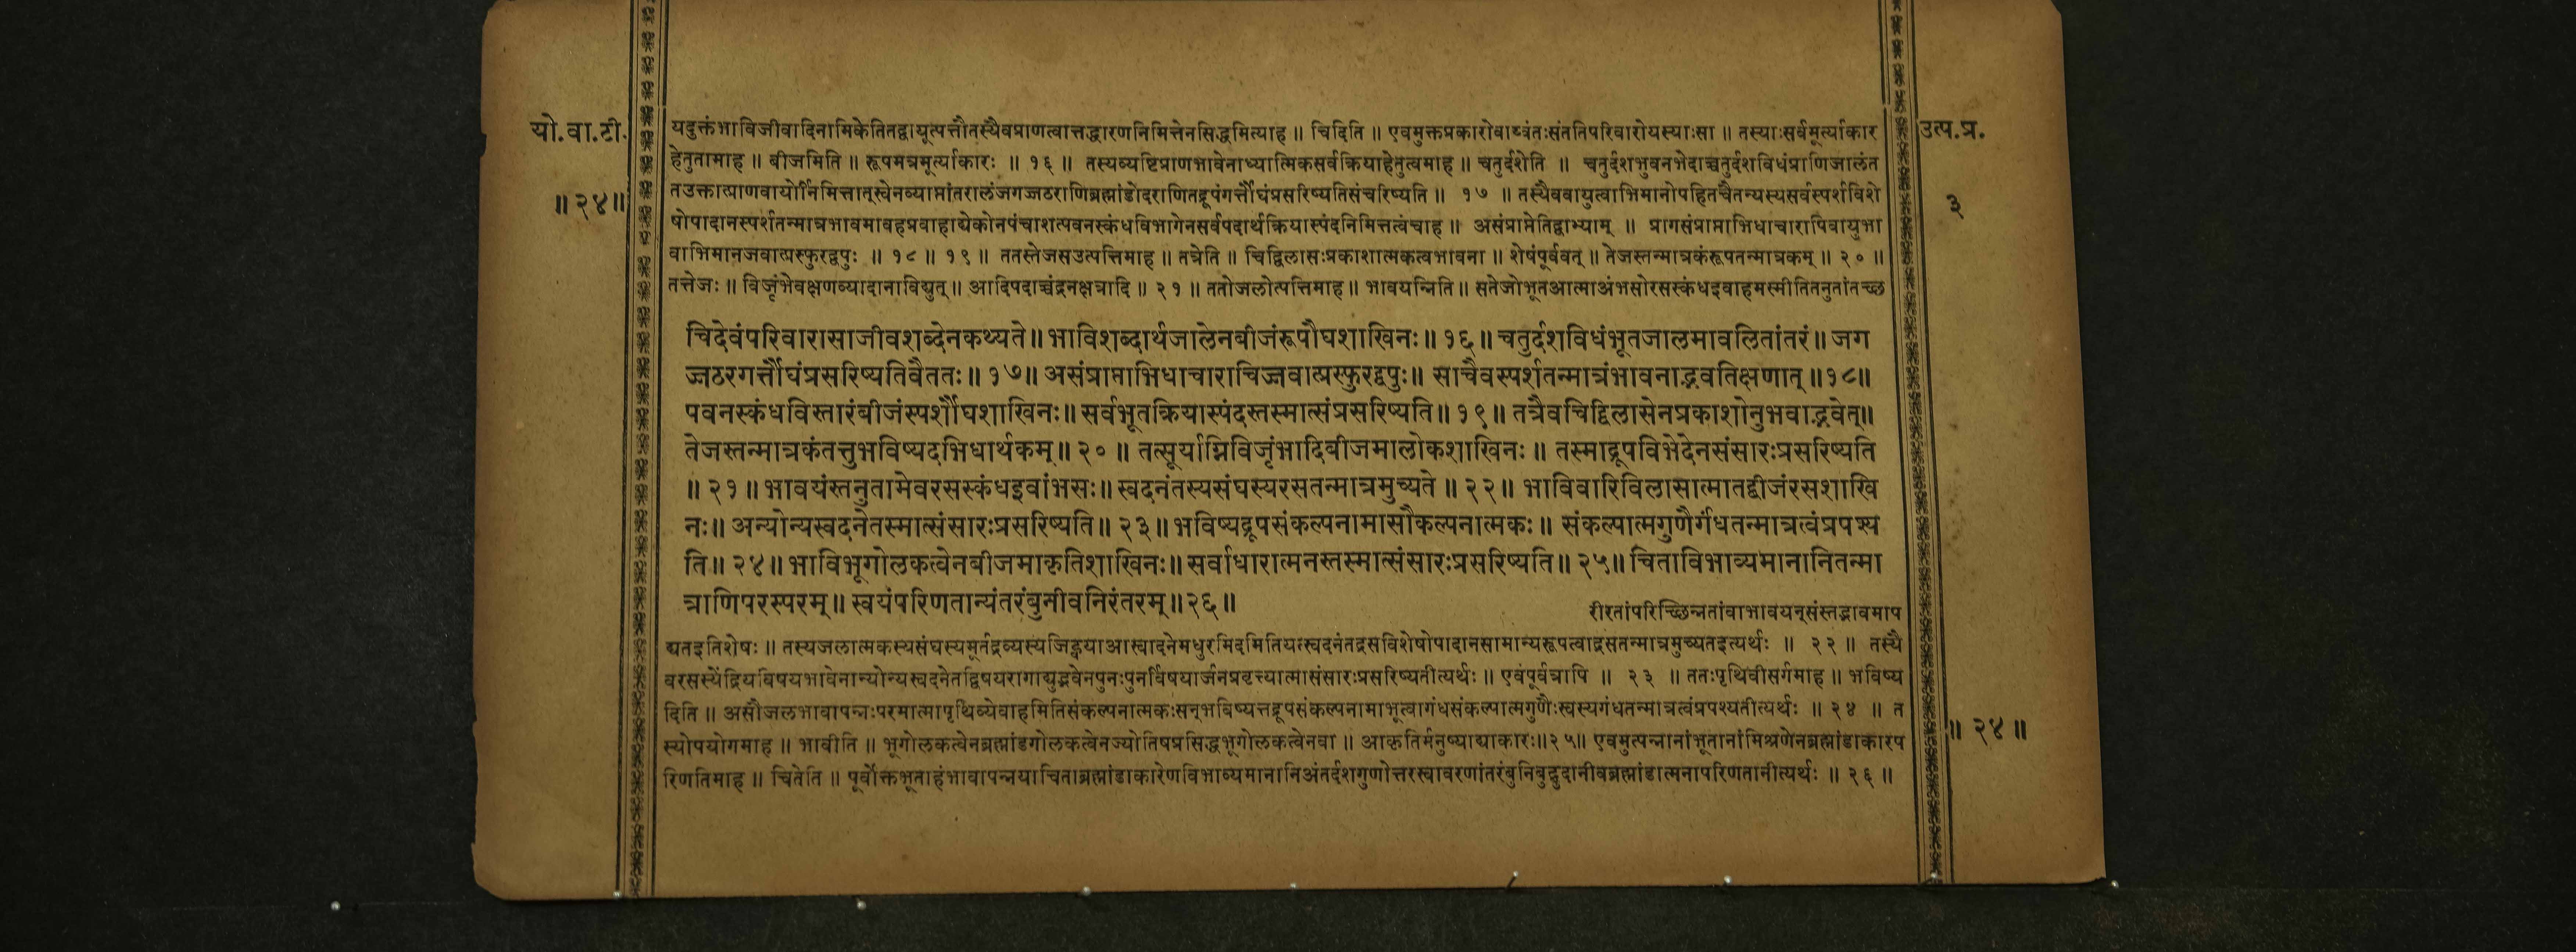 यो.वा.टी.
॥२४॥
उत्प.प्र.
३
यदुक्तंभाविजीवादिनामिकेतितद्वायूत्पत्तौतस्यैवप्राणत्वात्तद्धारणनिमित्तेनसिद्धमित्याह ॥ चिदिति ॥ एवमुक्तप्रकारोवाय्वंतःसंततिपरिवारोयस्याःसा ॥ तस्याःसर्वमूर्त्याकार
हेतुतामाह ॥ बीजमिति ॥ रूपमत्रमूर्त्याकारः ॥ १६ ॥ तस्यव्यष्टिप्राणभावेनाध्यात्मिकसर्वक्रियाहेतुत्वमाह ॥ चतुर्दशेति ॥ चतुर्दशभुवनभेदाच्चतुर्दशविधंप्राणिजालंत
तउक्तात्प्राणवायोर्निमित्तात्स्वेनव्याप्तांतरालंजगज्जठराणिब्रह्मांडोदराणितद्रूपंगर्त्तौघंप्रसरिष्यतिसंचरिष्यति ॥ १७ ॥ तस्यैववायुत्वाभिमानोपहितचैतन्यस्यसर्वस्पर्शविशे
षोपादानस्पर्शतन्मात्रभावमावहप्रवाहाद्येकोनपंचाशत्पवनस्कंधविभागेनसर्वपदार्थक्रियास्पंदनिमित्तत्वंचाह ॥ असंप्राप्तेतिद्वाभ्याम् ॥ प्रागसंप्राप्ताभिधाचारापिवायुभा
वाभिमानजवात्प्रस्फुरद्वपुः ॥ १८ ॥ १९ ॥ ततस्तेजसउत्पत्तिमाह ॥ तत्रेति ॥ चिद्विलासःप्रकाशात्मकत्वभावना ॥ शेषंपूर्ववत् ॥ तेजस्तन्मात्रकंरूपतन्मात्रकम् ॥ २० ॥
तत्तेजः ॥ विजृंभेवक्षणव्यादानाविद्युत् ॥ आदिपदाच्चंद्रनक्षत्रादि ॥ २१ ॥ ततोजलोत्पत्तिमाह ॥ भावयन्निति ॥ सतेजोभूतआत्माअंभसोरसस्कंधइवाहमस्मीतितनुतांतच्छ
चिदेवंपरिवारासाजीवशब्देनकथ्यते ॥ भाविशब्दार्थजालेनबीजंरूपौघशाखिनः ॥ १६ ॥ चतुर्दशविधंभूतजालमावलितांतरं ॥ जग
ज्जठरगर्त्तौघंप्रसरिष्यतिवैततः ॥ १७ ॥ असंप्राप्ताभिधाचाराचिज्जवात्प्रस्फुरद्वपुः ॥ साचैवस्पर्शतन्मात्रंभावनाद्भवतिक्षणात् ॥१८॥
पवनस्कंधविस्तारंबीजंस्पर्शौघशाखिनः ॥ सर्वभूतक्रियास्पंदस्तस्मात्संप्रसरिष्यति ॥ १९ ॥ तत्रैवचिद्विलासेनप्रकाशोनुभवाद्भवेत् ॥
तेजस्तन्मात्रकंतत्तुभविष्यदभिधार्थकम् ॥ २० ॥ तत्सूर्याग्निविजृंभादिबीजमालोकशाखिनः ॥ तस्माद्रूपविभेदेनसंसारःप्रसरिष्यति
॥ २१ ॥ भावयंस्तनुतामेवरसस्कंधइवांभसः ॥ स्वदनंतस्यसंघस्यरसतन्मात्रमुच्यते ॥ २२ ॥ भाविवारिविलासात्मातद्बीजंरसशाखि
नः ॥ अन्योन्यस्वदनेतस्मात्संसारःप्रसरिष्यति ॥ २३ ॥ भविष्यद्रूपसंकल्पनामासौकल्पनात्मकः ॥ संकल्पात्मगुणैर्गंधतन्मात्रत्वंप्रपश्य
ति ॥ २४ ॥ भाविभूगोलकत्वेनबीजमाकृतिशाखिनः ॥ सर्वाधारात्मनस्तस्मात्संसारःप्रसरिष्यति ॥ २५ ॥ चिताविभाव्यमानानितन्मा
त्राणिपरस्परम् ॥ स्वयंपरिणतान्यंतरंबुनीवनिरंतरम् ॥२६॥
रीरतांपरिच्छिन्नतांवाभावयन्संस्तद्भावमाप
द्यतइतिशेषः ॥ तस्यजलात्मकस्यसंघस्यमूर्तद्रव्यस्यजिह्वयाआस्वादनेमधुरमिदमितियत्स्वदनंतद्रसविशेषोपादानसामान्यरूपत्वाद्रसतन्मात्रमुच्यतइत्यर्थः ॥ २२ ॥ तस्यै
वरसस्येंद्रियविषयभावेनान्योन्यस्वदनेतद्विषयरागाद्युद्भवेनपुनःपुनर्विषयार्जनप्रवृत्त्यात्मासंसारःप्रसरिष्यतीत्यर्थः ॥ एवंपूर्वत्रापि ॥ २३ ॥ ततःपृथिवीसर्गमाह ॥ भविष्य
दिति ॥ असौजलभावापन्नःपरमात्मापृथिव्येवाहमितिसंकल्पनात्मकःसन्भविष्यत्तद्रूपसंकल्पनामाभूत्वागंधसंकल्पात्मगुणैःस्वस्यगंधतन्मात्रत्वंप्रपश्यतीत्यर्थः ॥ २४ ॥ त
स्योपयोगमाह ॥ भावीति ॥ भूगोलकत्वेनब्रह्मांडगोलकत्वेनज्योतिषप्रसिद्धभूगोलकत्वेनवा ॥ आकृतिर्मनुष्याद्याकारः॥२५॥ एवमुत्पन्नानांभूतानांमिश्रणेनब्रह्मांडाकारप
रिणतिमाह ॥ चितेति ॥ पूर्वोक्तभूताहंभावापन्नयाचिताब्रह्मांडाकारेणविभाव्यमानानिअंतर्दशगुणोत्तरस्वावरणांतरंबुनिबुद्बुदानीवब्रह्मांडात्मनापरिणतानीत्यर्थः ॥ २६ ॥
॥ २४ ॥